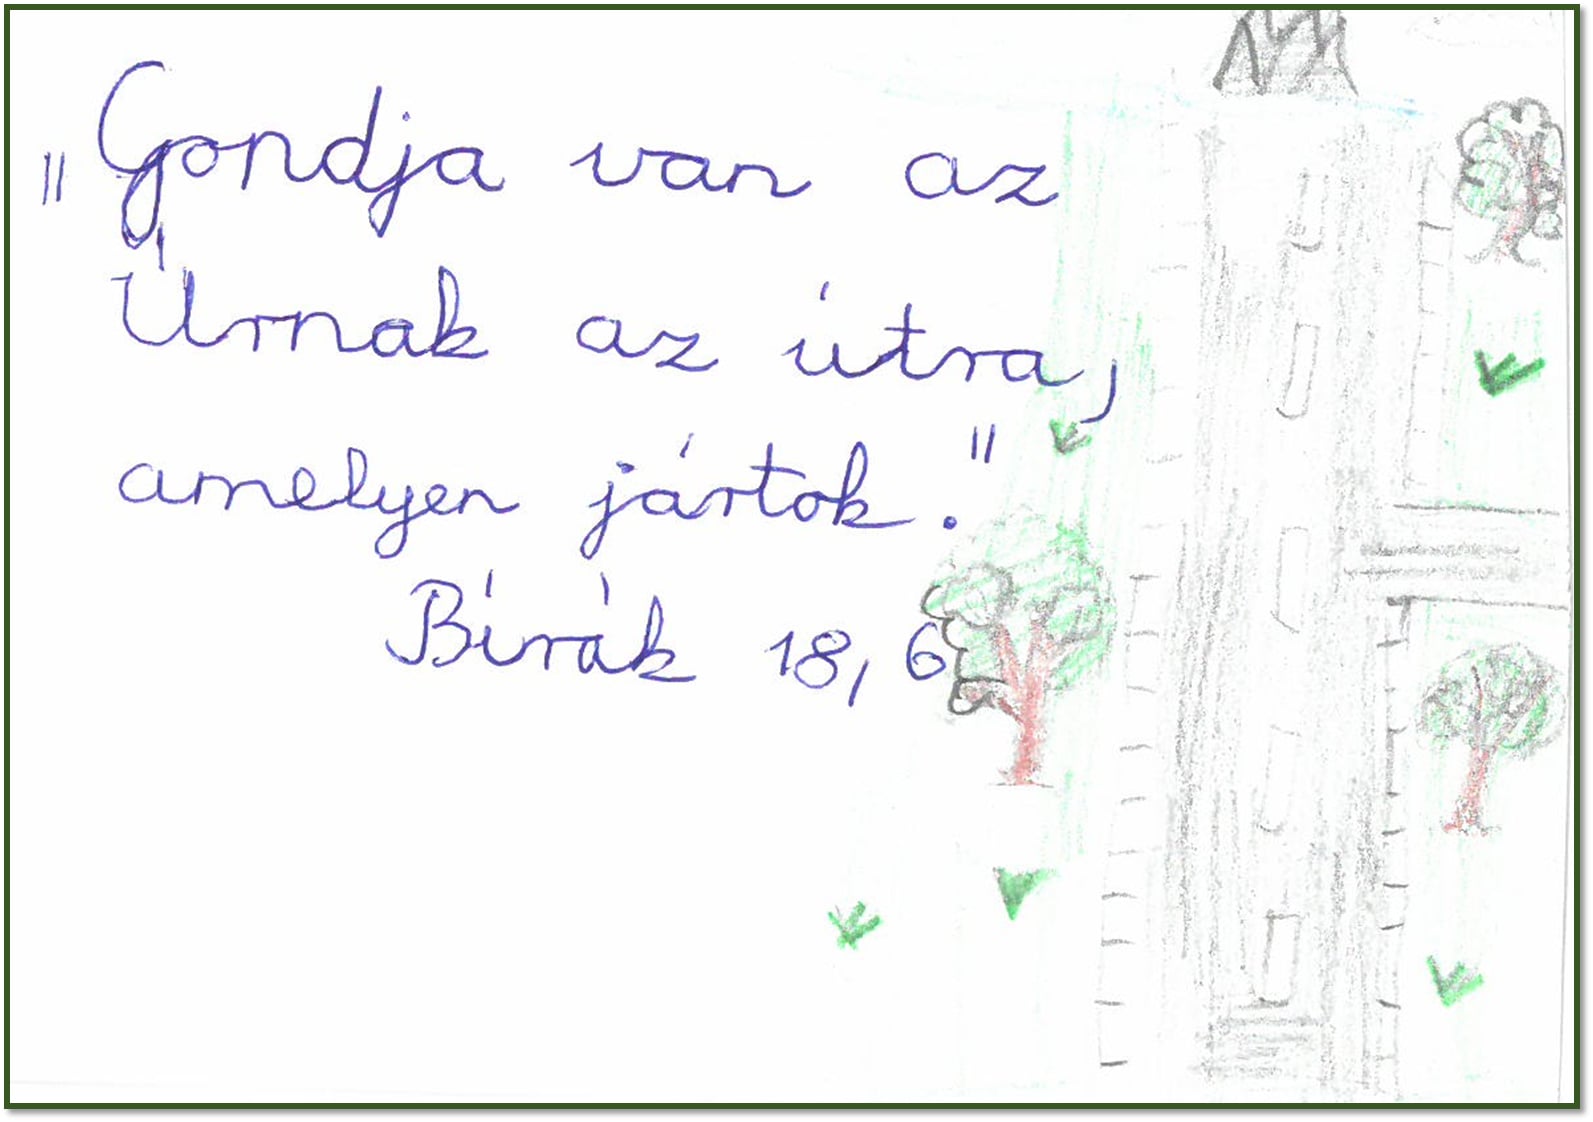 "Gondja van az
Úrnak az útra,
amelyen jártok."
Bírák 18, 6